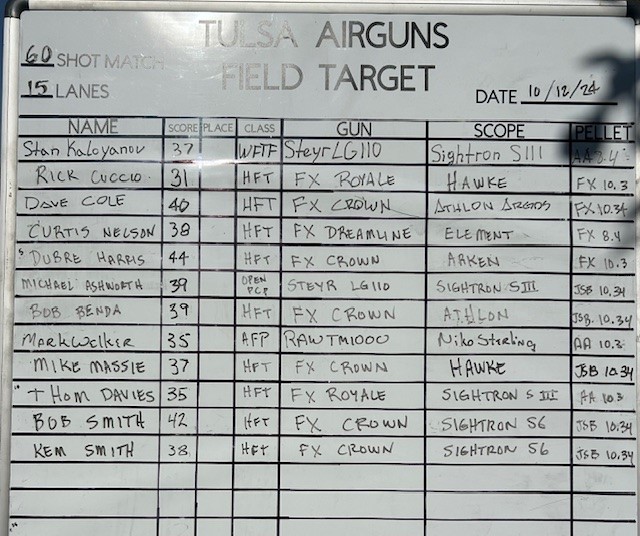 TULSA AIRGUNS
60 SHOT MATCH
FIELD TARGET
15 LANES
DATE 10/12/24
NAME SCORE PLACE CLASS GUN SCOPE PELLET
Stan Kaloyanov 37 WFTF Steyr LG110 Sightron SIII AA 8.4
RICK CUCCIO 31 HFT FX ROYALE HAWKE FX 10.3
DAVE COLE 40 HFT FX CROWN ATHLON ARGOS FX 10.34
CURTIS NELSON 38 HFT FX DREAMLINE ELEMENT FX 8.4
DUBRE HARRIS 44 HFT FX CROWN ARKEN FX 10.3
MICHAEL ASHWORTH 39 OPEN PCP STEYR LG110 SIGHTRON SIII JSB 10.34
BOB BENDA 39 HFT FX CROWN ATHLON JSB. 10.34
Mark Welker 35 AFP RAW TM1000 Niko Sterling AA 10.3
MIKE MASSIE 37 HFT FX CROWN HAWKE JSB 10.34
THOM DAVIES 35 HFT FX ROYALE SIGHTRON S III AA 10.3
BOB SMITH 42 HFT FX CROWN SIGHTRON S6 JSB 10.34
KEM SMITH 38 HFT FX CROWN SIGHTRON S6 JSB 10.34